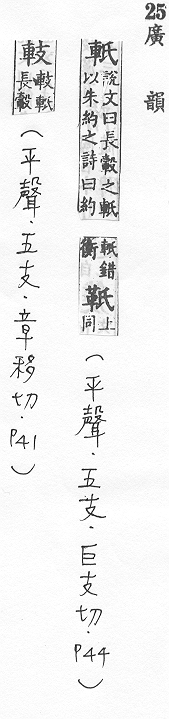 25廣韻
軝說文曰長轂之軝以朱約之詩曰約軝錯衡䡋上同(平聲.五支.巨支切.P44)
𨋅𨋅軝長轂(平聲.五支.章移切.P41)